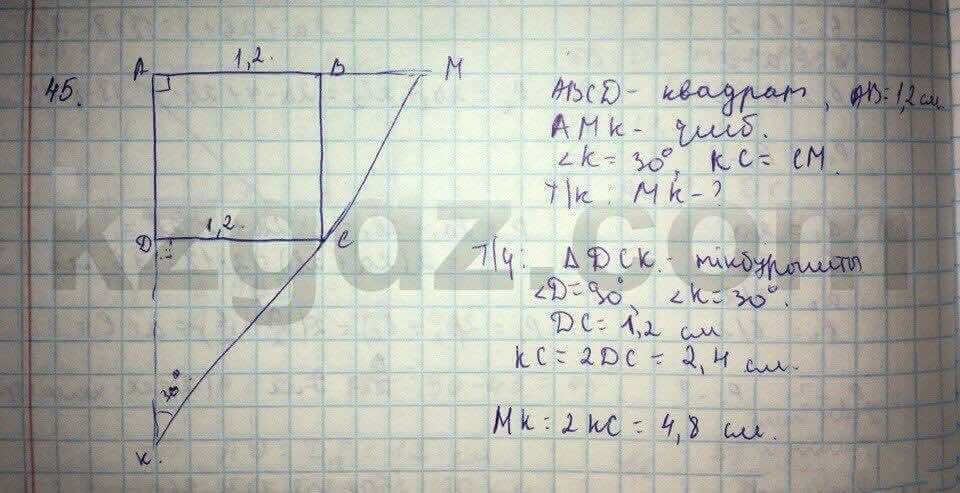 45.
A 1,2. B M
D 1,2. C
30°
K.
ABCD - квадрат, AB = 1,2 см.
AMK -
∠K = 30°, KC = CM.
Т/к : MK - ?
Т/ч : Δ DCK - тікбұрышты
∠D = 90°, ∠K = 30°.
DC = 1,2 см
KC = 2DC = 2,4 см.
MK = 2KC = 4,8 см.
kzgdz.com